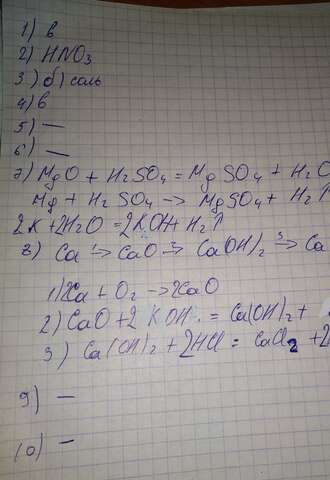 1) в
2) HNO₃
3) б) соль
4) в
5) —
6) —
7) MgO + H₂SO₄ = MgSO₄ + H₂O
Mg + H₂SO₄ → MgSO₄ + H₂↑
2K + 2H₂O = 2KOH + H₂↑
8) Ca ¹→ CaO ²→ Ca(OH)₂ ³→ Ca
1) 2Ca + O₂ → 2CaO
2) CaO + 2KOH = Ca(OH)₂ +
3) Ca(OH)₂ + 2HCl = CaCl₂ + 2
9) —
10) —